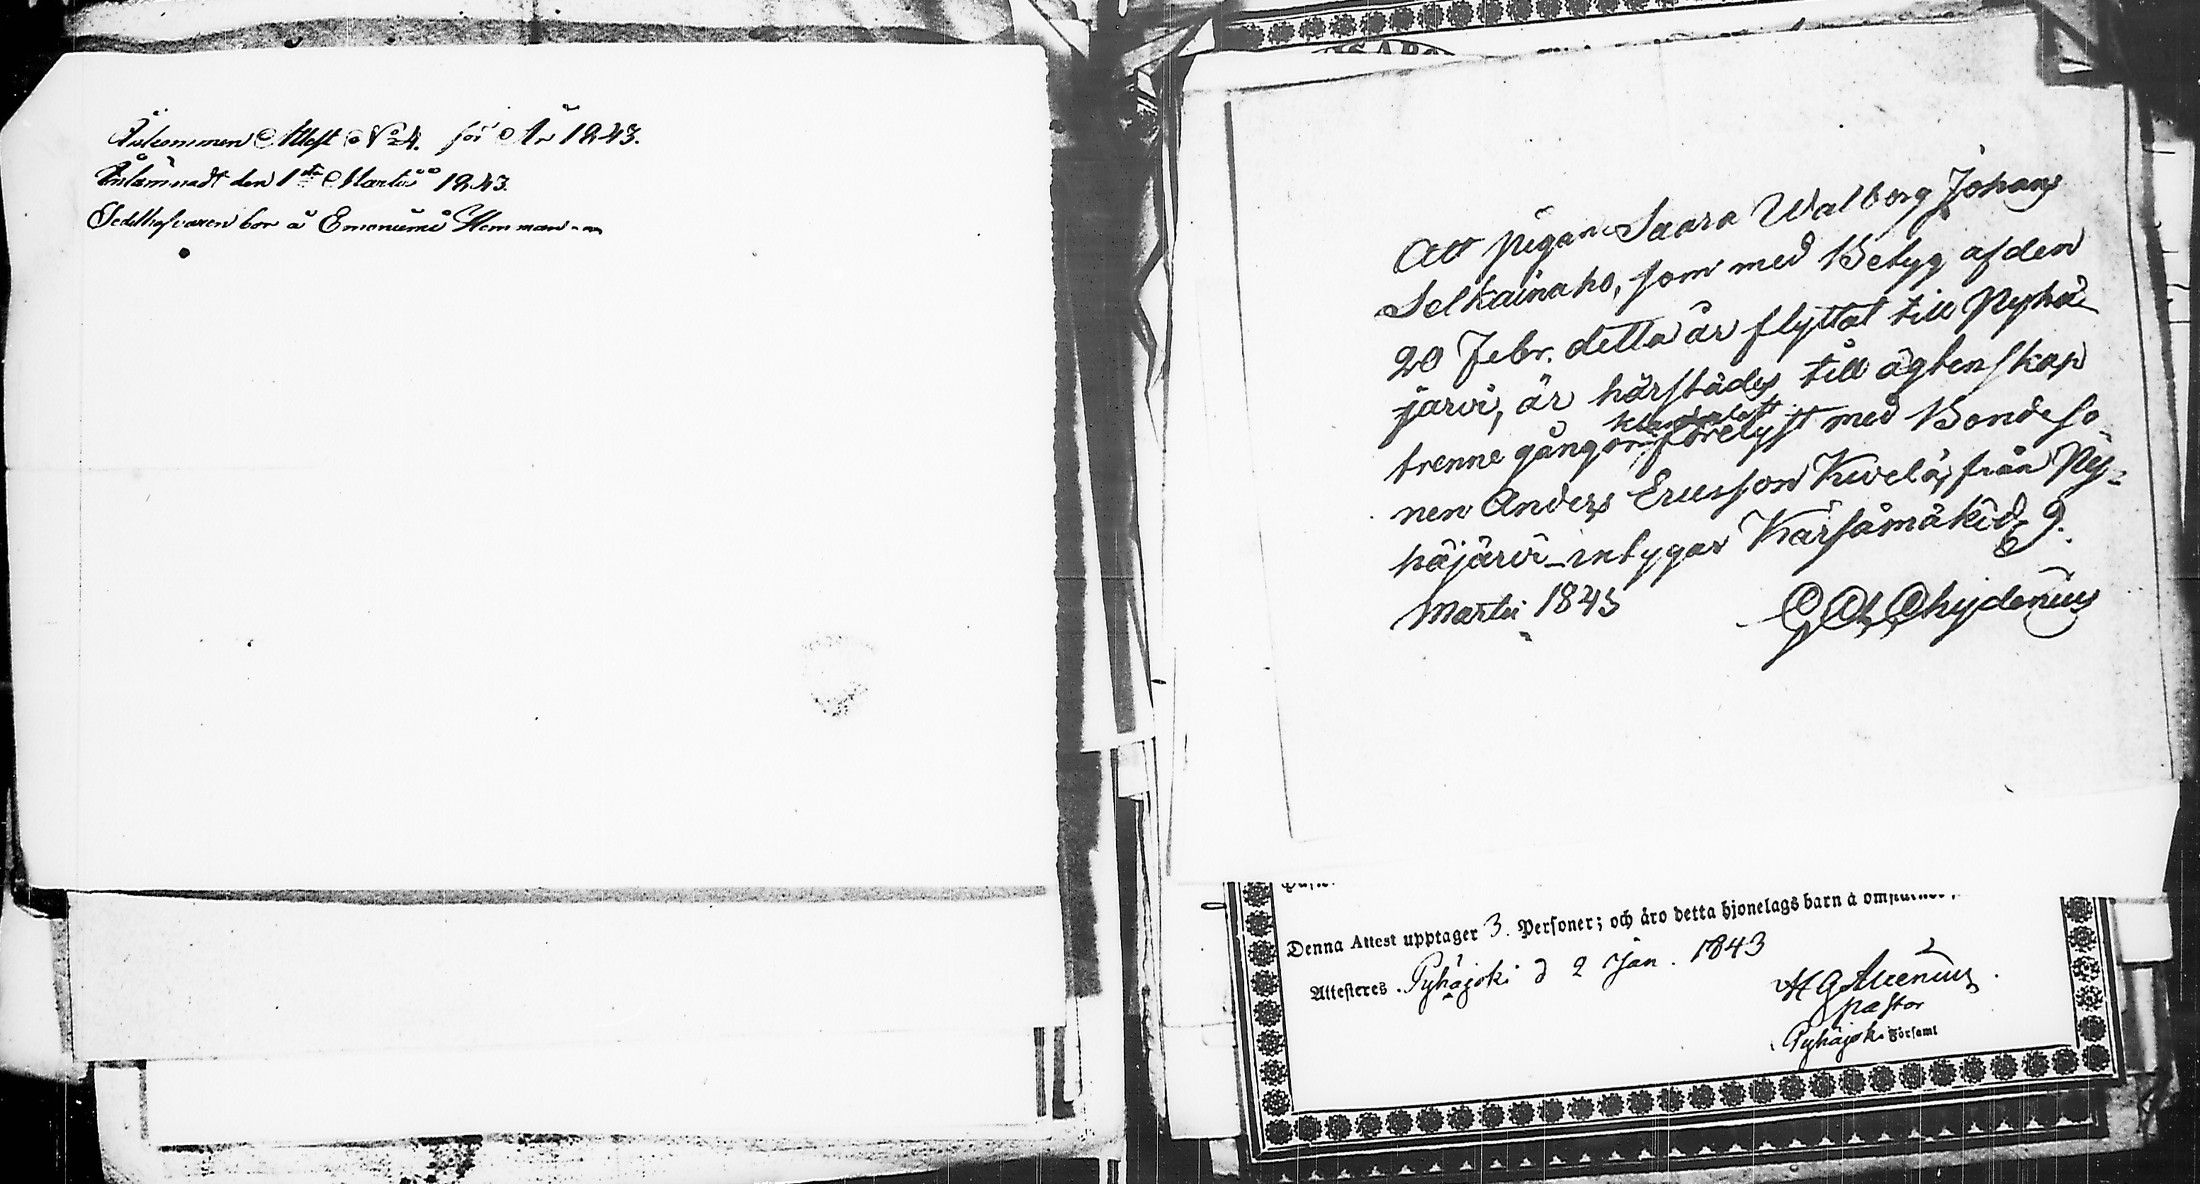 Ankommen Attest No 4. för År 1843.
Inlämnadt den 1sta Martii 1843.
Sedelhafvaren bor å Emoniemi Hemman
Att pigan Saara Walborg Johans
Selkäinaho, som med Betyg af den
20 Febr. detta år flyttat till Pyhä
järvi, är härstädes till ägtenskap
trenne gångor klanderlöst förelyst med Bondeso
nen Anders Ericsson Kivelä, från Py-
häjärvi intygar Kärsämäki d. 9.
Martii 1843
Chydenius
Denna Attest upptager 3. Personer; och äro detta hjonelags barn å
Attesteres Pyhäjoki d 2 Jan. 1843
Pastor
Pyhäjoki Församl